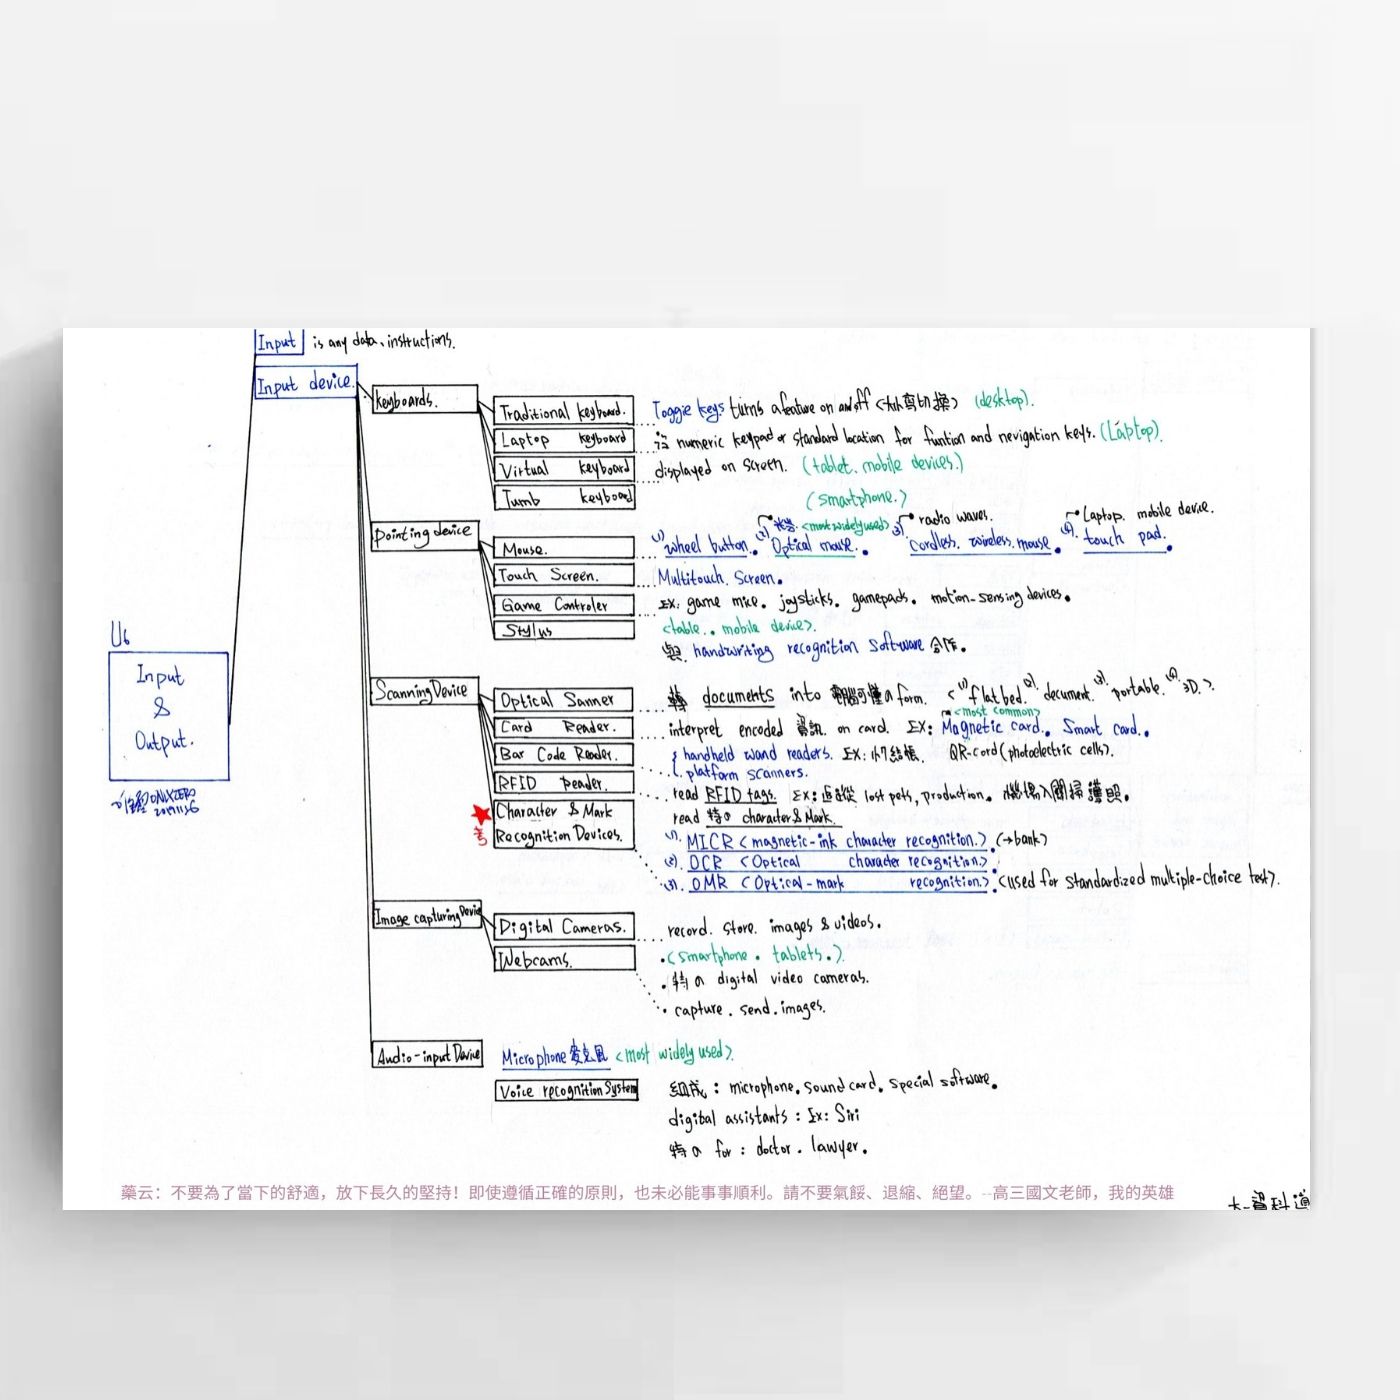 Input is any data、instructions.
Input device.
Keyboards.
Traditional keyboard. Toggie keys turns a feature on and off <大小寫切換> (desktop).
Laptop keyboard numeric keypad or standard location for funtion and nevigation keys. (Laptop).
Virtual keyboard displayed on screen. (tablet. mobile devices.)
Tumb keyboard (smartphone.)
Pointing device
<most widely used> radio waves. Laptop. mobile device.
Mouse. (1) wheel button. (2) Optical mouse. (3) Cordless. wireless. mouse. (4) touch pad.
Touch Screen. Multitouch. Screen.
Game Controler Ex: game mice. joysticks. gamepads. motion-sensing devices.
Stylus <table.. mobile device>.
與 handwriting recognition Software 合作。
U6
Input
&
Output.
ONLYZERO
Scanning Device
Optical Sanner 轉 documents into 電腦可懂の form. <(1) flatbed. (2) document. (3) portable. (4) 3D.>
<most common>
Card Reader. interpret encoded 資訊 on card. Ex: Magnetic card. Smart card..
Bar Code Reader. handheld wand readers. Ex: 結帳. QR-cord (photoelectric cells).
platform scanners.
RFID Reader. read RFID tags. Ex: 追蹤 lost pets, production. 機場入關掃護照.
Character & Mark
Recognition Devices.
考
read 特の character & Mark.
(1). MICR <magnetic-ink character recognition.> (→bank)
(2). OCR <Optical character recognition.>
(3). OMR <Optical-mark recognition.> <used for standardized multiple-choice test>.
Image capturing Device
Digital Cameras. record. store. images & videos.
(smartphone. tablets.)
Webcams. 特の digital video cameras.
capture. send. images.
Audio-input Device Microphone 麥克風 <most widely used>.
Voice recognition System 組成: microphone. sound card. special software.
digital assistants: Ex: Siri
特の for: doctor. lawyer.
藥云：不要為了當下的舒適，放下長久的堅持！即使遵循正確的原則，也未必能事事順利。請不要氣餒、退縮、絕望。--高三國文老師，我的英雄